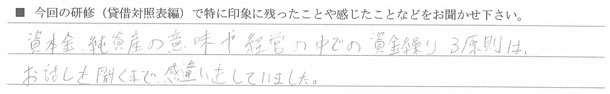 ■ 今回の研修（貸借対照表編）で特に印象に残ったことや感じたことなどをお聞かせ下さい。
資本金、純資産の意味や経営の中での資金繰り3原則は、
お話しを聞くまで感違いをしていました。